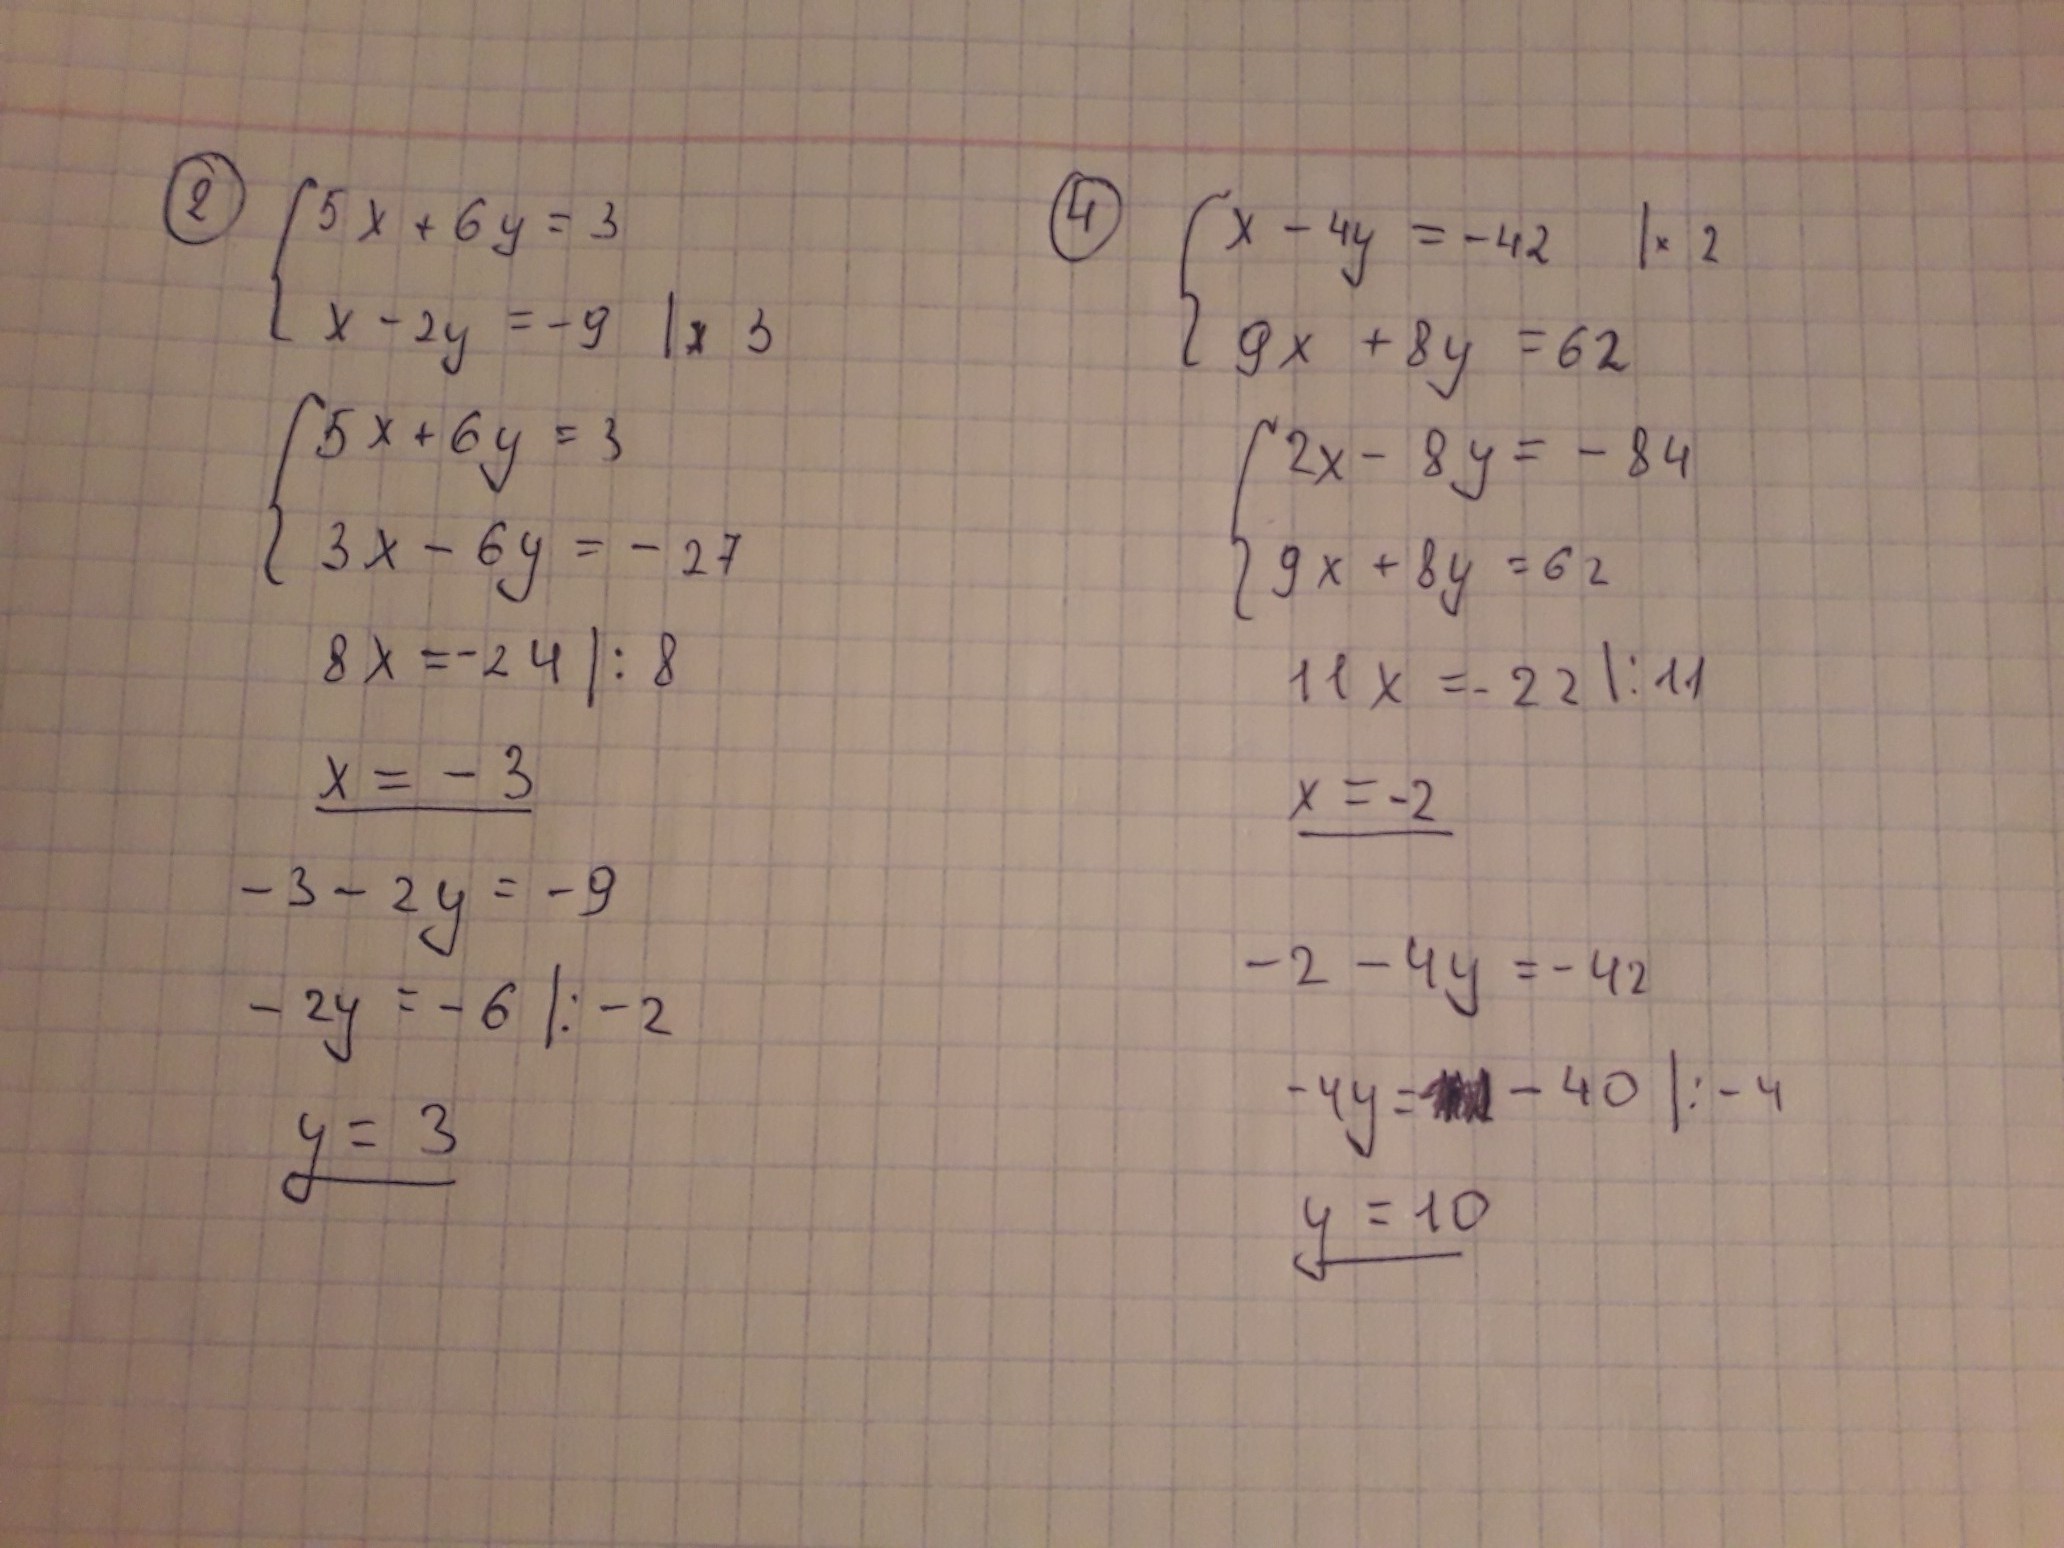 2
5x + 6y = 3
x - 2y = -9 |x 3
5x + 6y = 3
3x - 6y = - 27
8x = -24 |: 8
x = - 3
-3 - 2y = -9
- 2y = - 6 |: - 2
y = 3
4
x - 4y = -42 |x 2
9x + 8y = 62
2x - 8y = - 84
9x + 8y = 62
11x = - 22 |: 11
x = -2
-2 - 4y = -42
-4y = - 40 |: - 4
y = 10